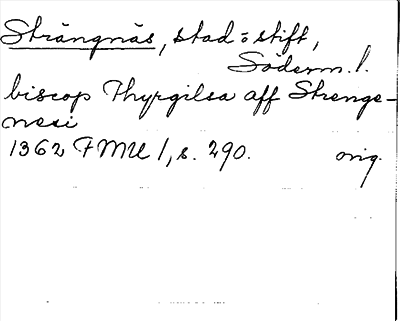 Strängnäs, stad o stift,
Söderm. l.
biscop Thyrgilsa aff Strenge-
nesi
1362 FMU 1, s. 290. orig.